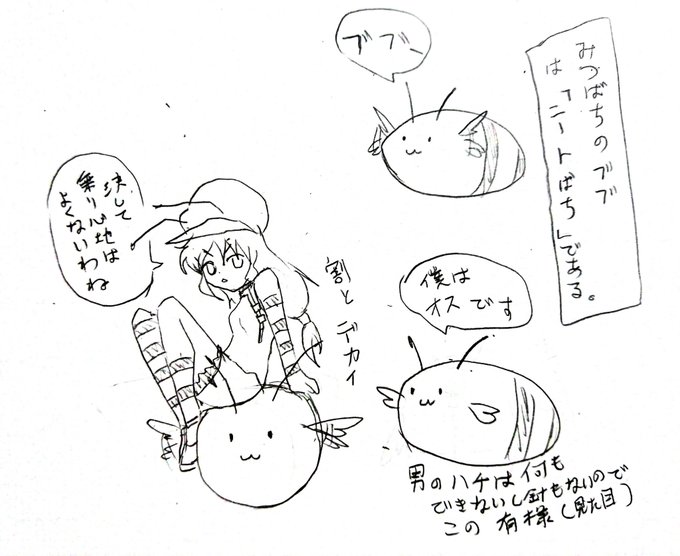 みつばちのブブ
は「ニートばち」である。
ブブ〜
僕は
オスです
男のハチは何も
できないし針もないので
この有様(見た目)
割とデカイ
決して
乗り心地は
よくないわね